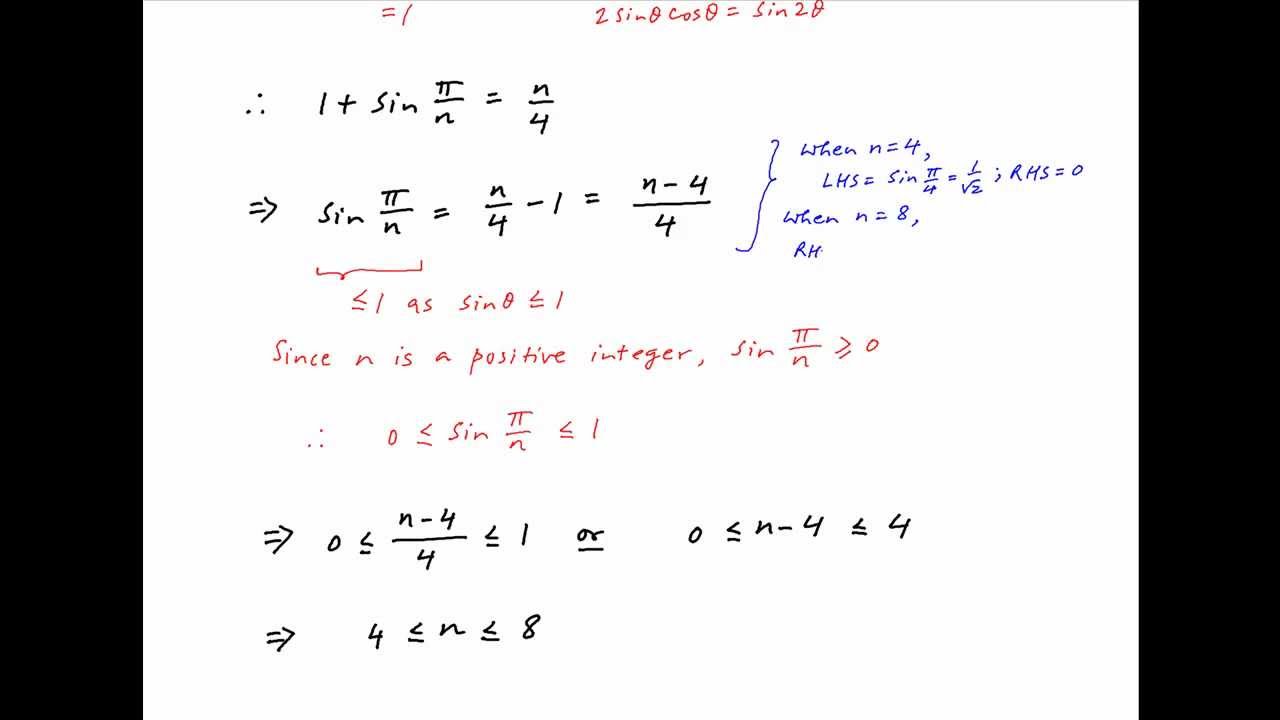 = 1 2 sinθ cosθ = sin 2θ
∴ 1 + sin π/n = n/4
⇒ sin π/n = n/4 − 1 = (n − 4)/4
when n = 4,
LHS = sin π/4 = 1/√2 ; RHS = 0
when n = 8,
RH
≤ 1 as sinθ ≤ 1
Since n is a positive integer, sin π/n ⩾ 0
∴ 0 ≤ sin π/n ≤ 1
⇒ 0 ≤ (n − 4)/4 ≤ 1 or 0 ≤ n − 4 ≤ 4
⇒ 4 ≤ n ≤ 8